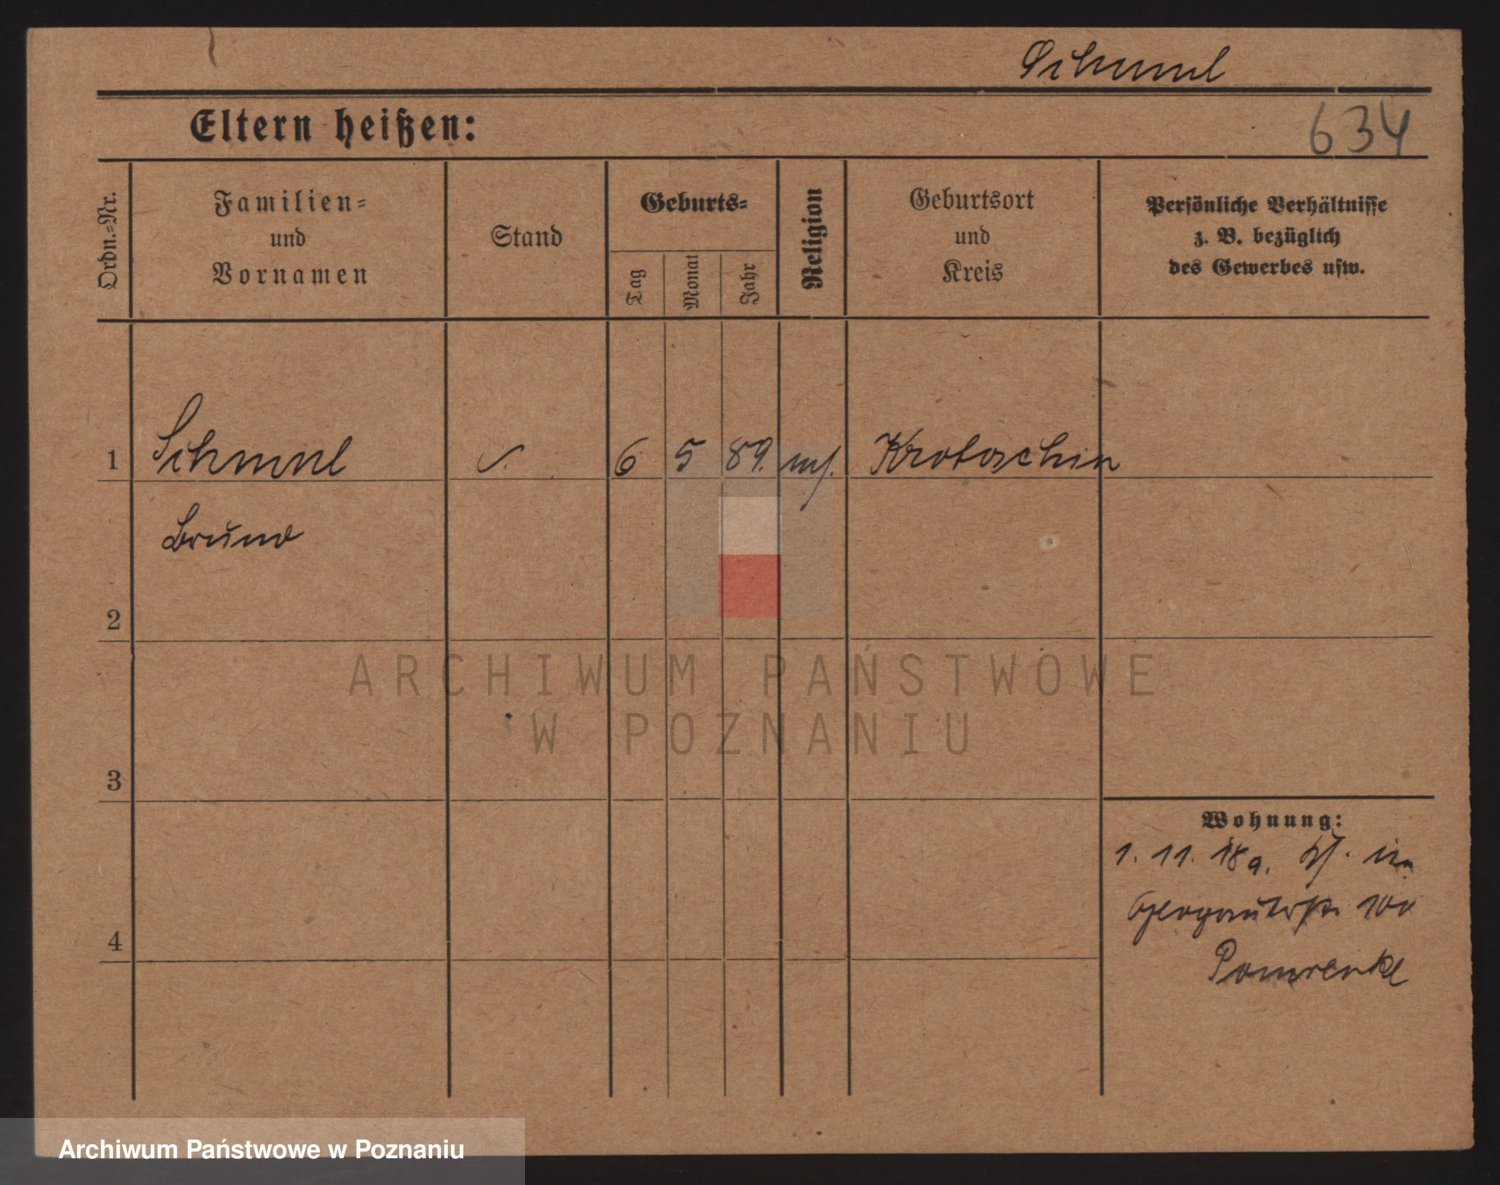 Schmul
Eltern heißen:
634
Ordn.-Nr.
Familien-
und
Vornamen
Stand
Geburts-
Tag
Monat
Jahr
Religion
Geburtsort
und
Kreis
Persönliche Verhältnisse
z. B. bezüglich
des Gewerbes usw.
1 Schmul 6 5 89. Krotoschin
Bruno
2
ARCHIWUM PAŃSTWOWE
W POZNANIU
3
Wohnung:
1. 11. 18
Glogauerstr. 100
4
Pomrenke
Archiwum Państwowe w Poznaniu